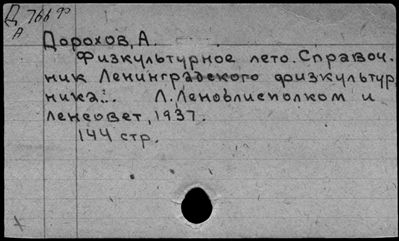 Д 766
А
Дорохов, А.
Физкультурное лето. Справоч.
ник Ленинградского физкультур
ника... Л. Леноблисполком и
Ленсовет, 1937.
144 стр.